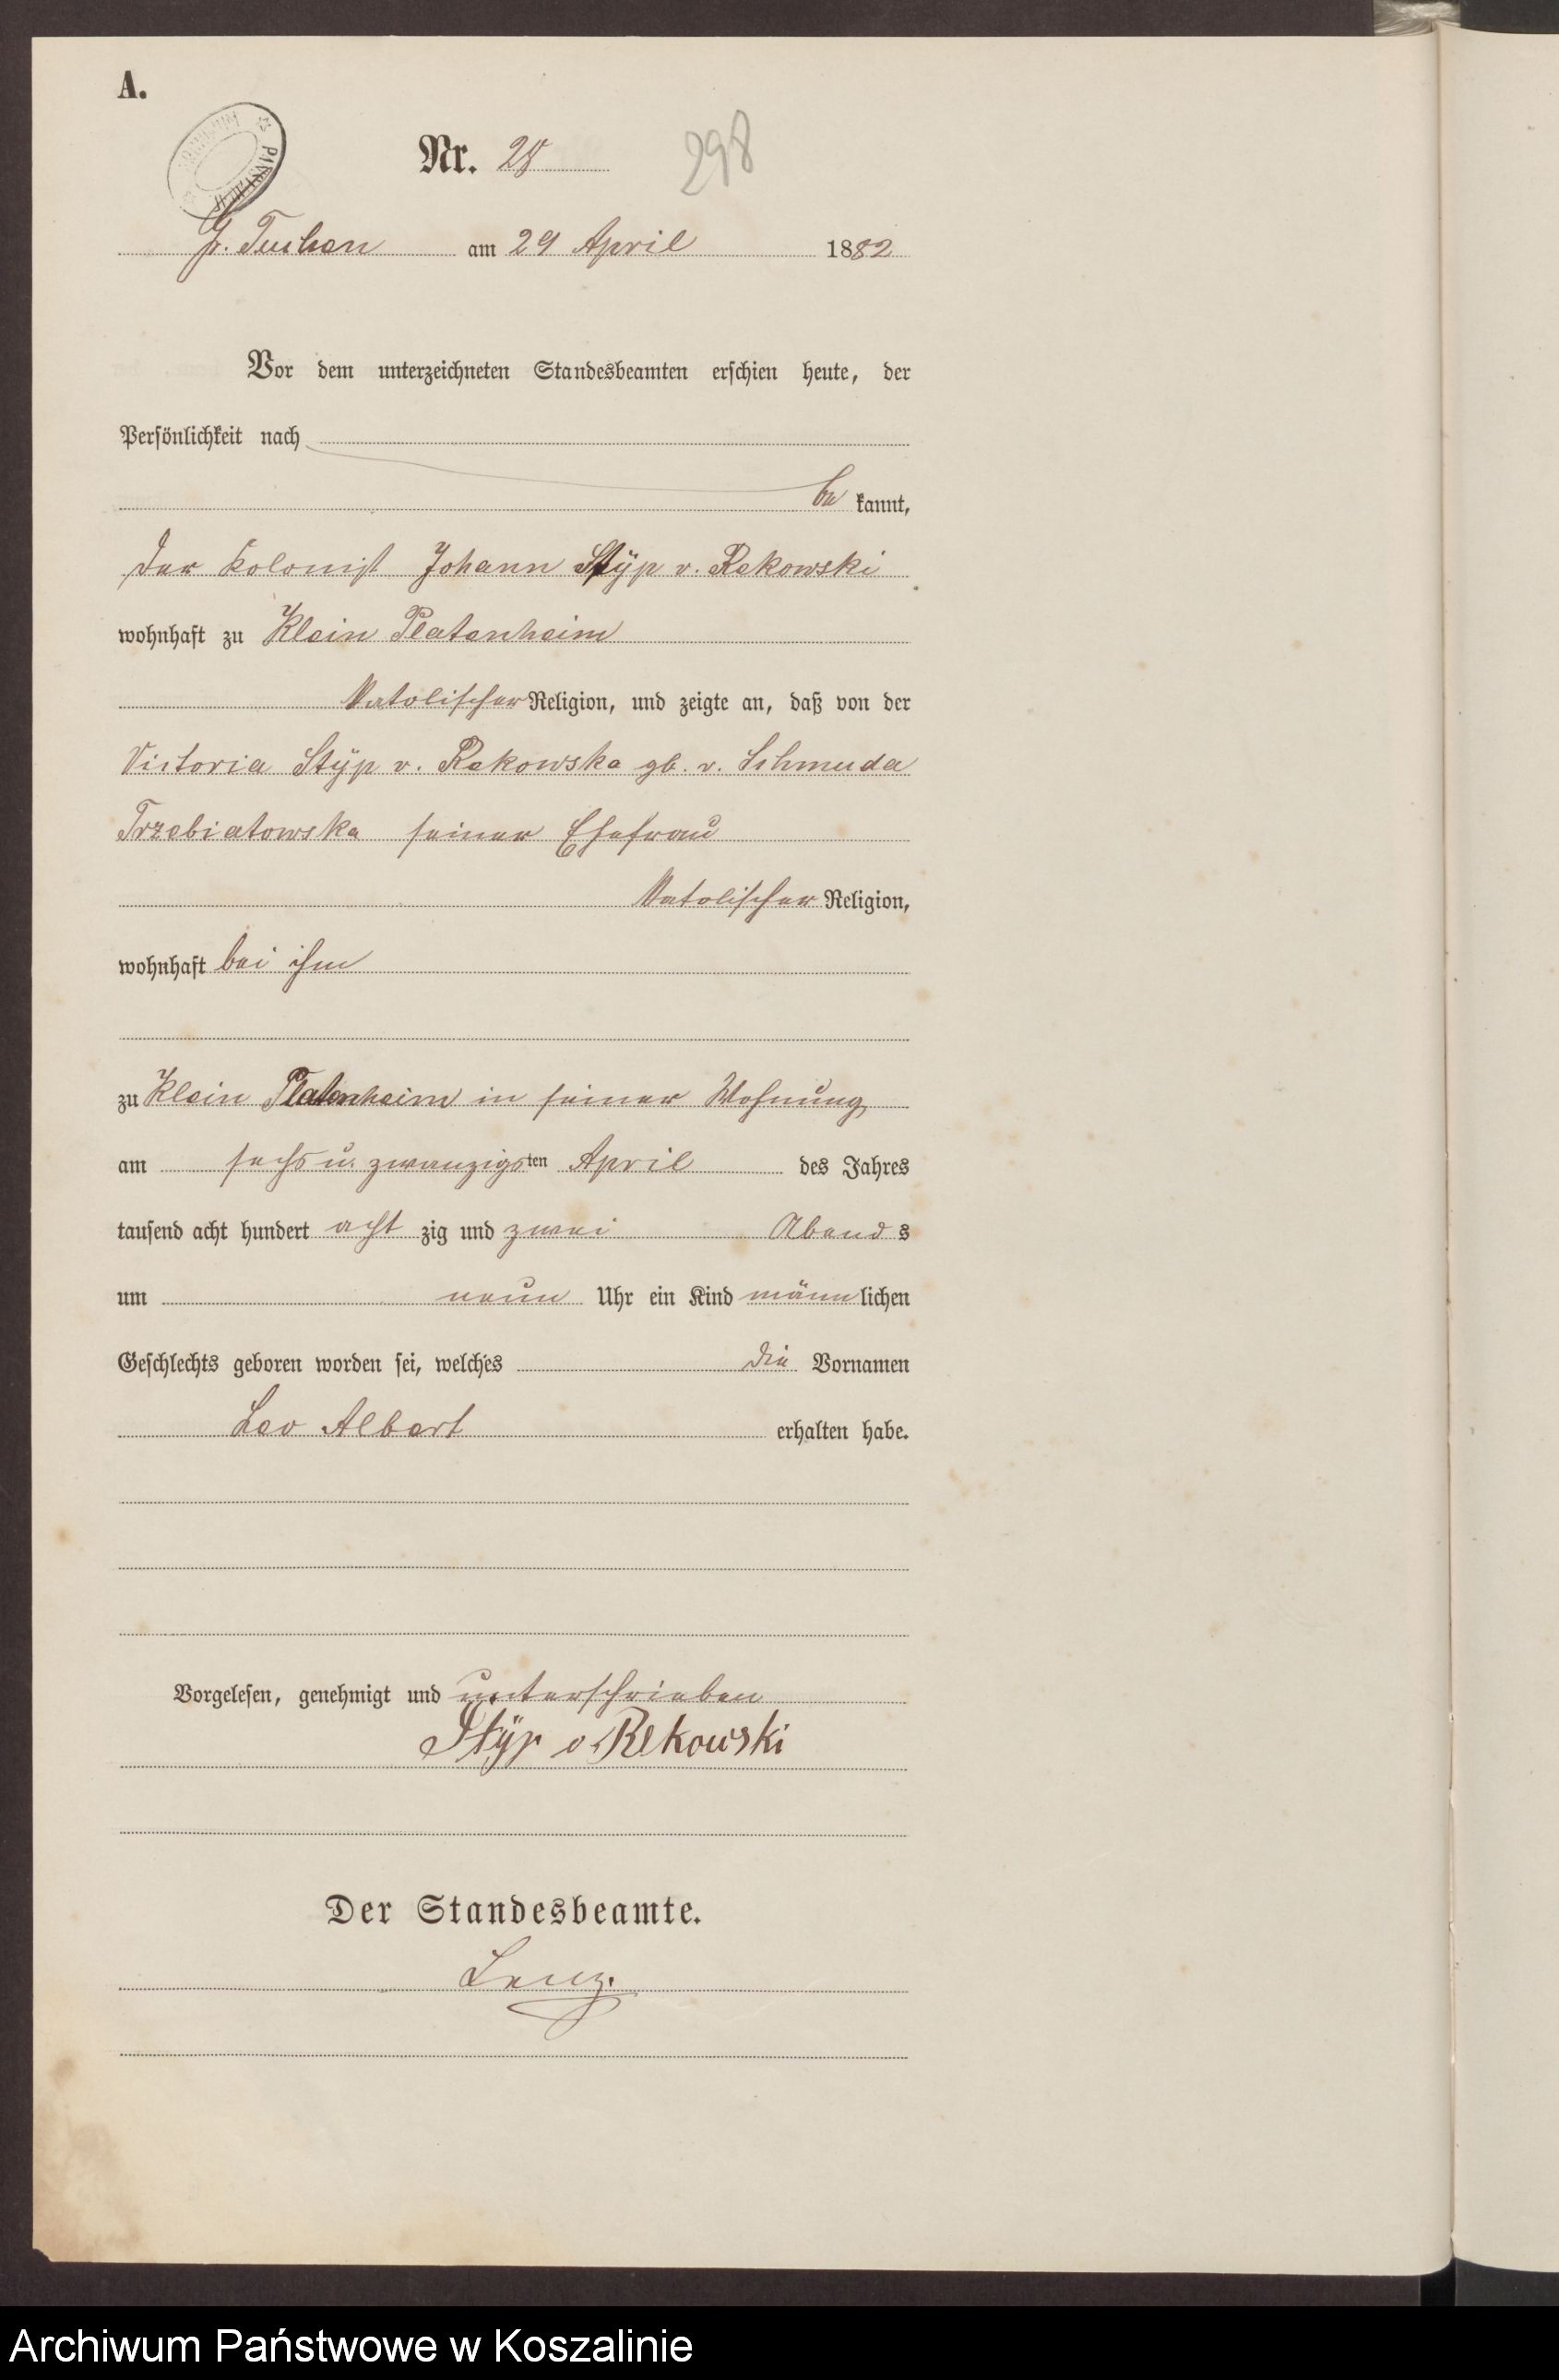 A.
Nr. 28 298
G. Tuchen am 29 April 1882
Vor dem unterzeichneten Standesbeamten erschien heute, der
Persönlichkeit nach
be kannt,
der Kolonist Johann Stÿp v. Rekowski
wohnhaft zu Klein Platenheim
katolischer Religion, und zeigte an, daß von der
Victoria Stÿp v. Rekowska gb. v. Schmuda
Trzebiatowska seiner Ehefrau
katolischer Religion,
wohnhaft bei ihm
zu Klein Platenheim in seiner Wohnung
am sechs u. zwanzigsten April des Jahres
tausend acht hundert acht zig und zwei Abends
um neun Uhr ein Kind männlichen
Geschlechts geboren worden sei, welches die Vornamen
Leo Albert erhalten habe.
Vorgelesen, genehmigt und unterschrieben
Stÿp v. Rekowski
Der Standesbeamte.
Lenz.
Archiwum Państwowe w Koszalinie